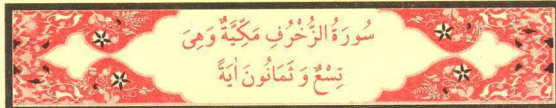 سُورَةُ الزُّخْرُفِ مَكِّيَّةٌ وَهِىَ
تِسْعٌ وَ ثَمَانُونَ اٰيَةً